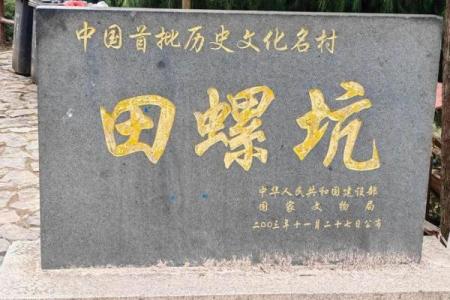 中国首批历史文化名村
田螺坑
中华人民共和国建设部
国家文物局
二〇〇三年十一月二十七日公布